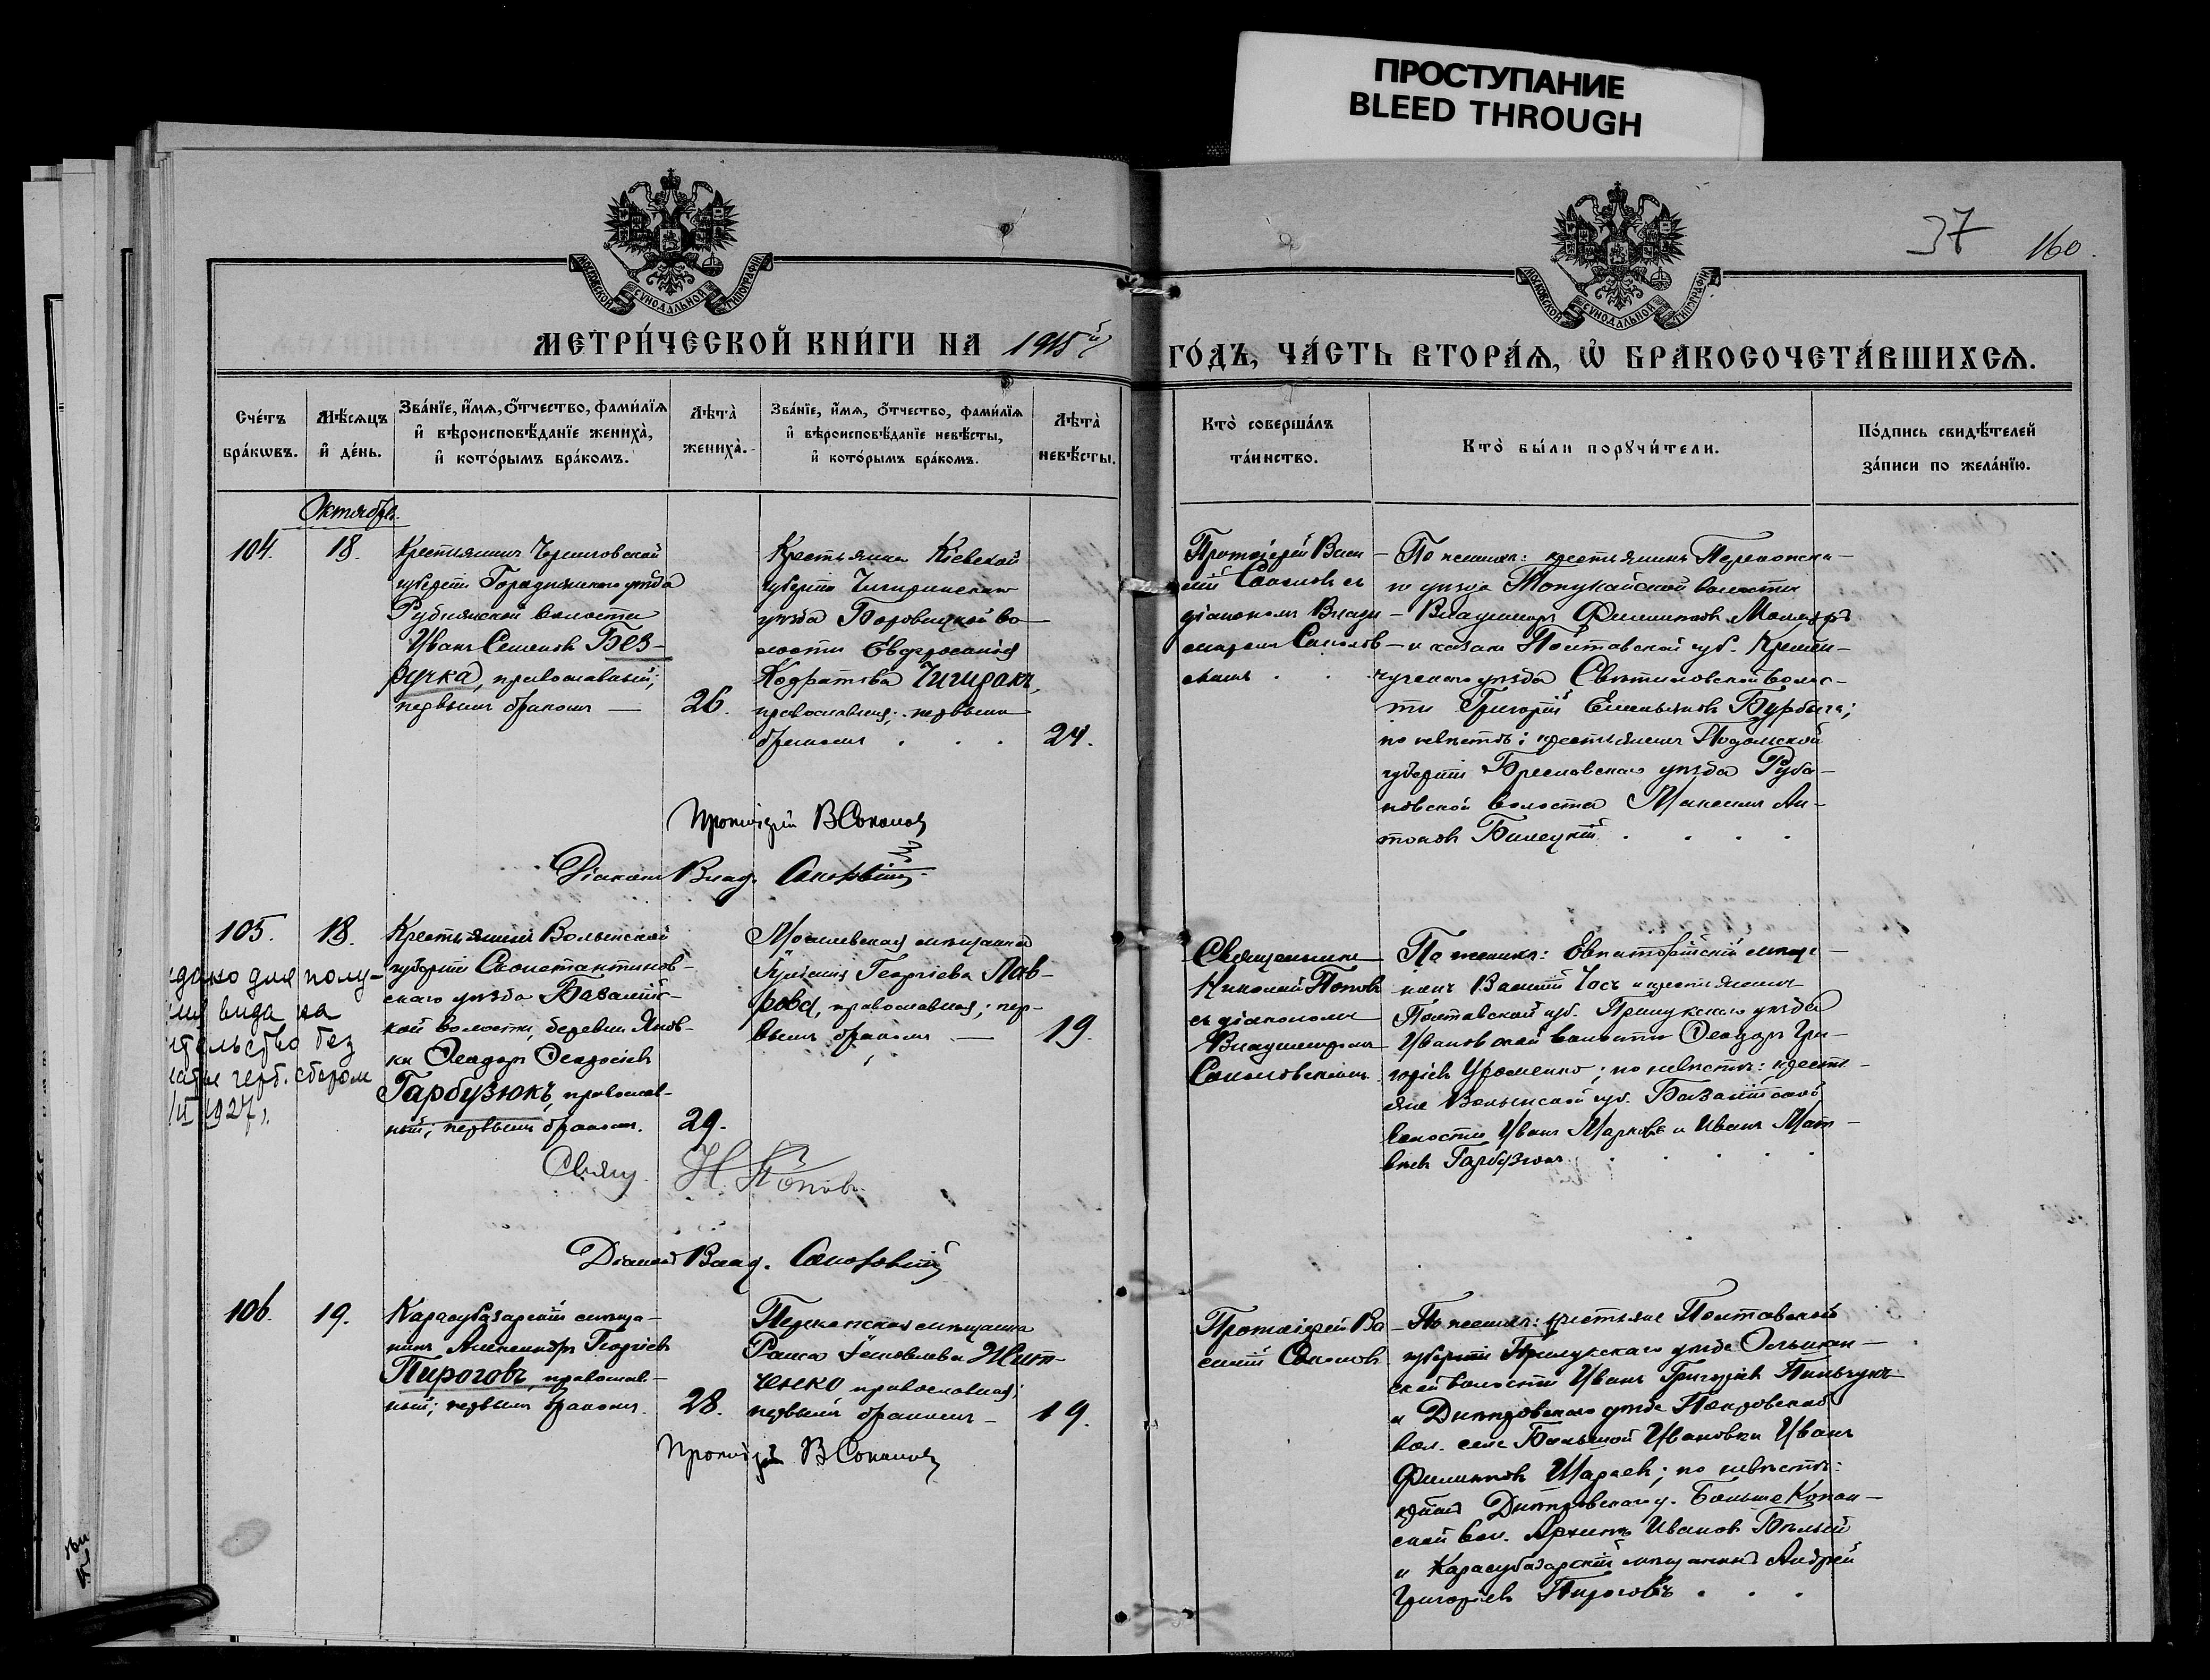 ПРОСТУПАНИЕ
BLEED THROUGH
37
160.
МОСКОВСКОЙ СУНОДАЛЬНОЙ ТИПОГРАФІИ
МОСКОВСКОЙ СУНОДАЛЬНОЙ ТИПОГРАФІИ
МЕТРИ́ЧЕСКОЙ КНИ́ГИ НА 1915й
ГО́ДЪ, ЧА́СТЬ ВТОРА́Ѧ, Ѽ БРАКОСОЧЕТА́ВШИХСѦ.
Сче́тъ бра́кѡвъ.
Мѣ́сѧцъ и҆ де́нь.
Зва́нїе, и҆́мѧ, ѻ҆́тчество, фами́лїѧ и҆ вѣроисповѣ́данїе жениха̀, и҆ кото́рымъ бра́комъ.
Лѣта̀ жениха̀.
Зва́нїе, и҆́мѧ, ѻ҆́тчество, фами́лїѧ и҆ вѣроисповѣ́данїе невѣ́сты, и҆ кото́рымъ бра́комъ.
Лѣта̀ невѣ́сты.
Кто̀ соверша́лъ та́инство.
Кто̀ бы́ли порꙋчи́тели.
По́дпись свидѣ́телей за́писи по жела́нїю.
Октябрь.
104.
18.
Крестьянинъ Черниговской
губерніи Городнянскаго уѣзда
волости
Иванъ Семеновъ Без-
ручка, православный;
первымъ бракомъ —
26.
Крестьянка Кіевской
губерніи Чигиринскаго
уѣзда Боровицкой во-
лости Евфросинія
Кодратова Чигиракъ,
православная; первымъ
бракомъ . . .
24.
Протоіерей Васи-
лій Соколовъ съ
діакономъ Влади-
міромъ Соколов-
скимъ . .
По женихѣ: крестьянинъ Перекопска-
го уѣзда волости
Владиміръ Филипповъ
и казакъ Полтавской губ. Кремен-
чугскаго уѣзда волос-
ти Григорій Емельяновъ
по невѣстѣ: крестьянинъ Подольской
губерніи Брацлавскаго уѣзда
волости Максимъ Ан-
тоновъ Билецкій . . . .
Протоіерей В Соколовъ
Діаконъ Влад. Соколовскій
105.
18.
Крестьянинъ Волынской
губерніи
скаго уѣзда Базалійс-
кой волости, деревни Янов-
ки Ѳеодоръ Ѳеодосіевъ
Гарбузюкъ, православ-
ный; первымъ бракомъ.
29.
мѣщанка
Іуліанія Георгіева Лав-
рова, православная; пер-
вымъ бракомъ —
19.
дано для полу-
вида на
тельство без
герб. сбором
1927 г.
Священникъ
Николай Поповъ
съ діакономъ
Владиміромъ
Соколовскимъ.
По женихѣ: Евпаторійскій мѣща-
нинъ Василій Чосъ и крестьянинъ
Полтавской губ. Прилукскаго уѣзда
Ивановской волости Ѳеодоръ Гри-
горіевъ ; по невѣстѣ: кресть-
яне Волынской губ. Базалійской
волости Иванъ Марковъ и Иванъ Мат-
вѣевъ Гарбузюки . . . .
Свящ. Н. Поповъ
Діаконъ Влад. Соколовскій
106.
19.
Карасубазарскій мѣща-
нинъ Александръ Георгіевъ
Пироговъ, православ-
ный; первымъ бракомъ.
28.
Перекопская мѣщанка
Раиса Іаковлева Жит-
ченко православная;
первымъ бракомъ —
19.
Протоіерей Ва-
силій Соколовъ
По женихѣ: крестьяне Полтавской
губерніи Прилукскаго уѣзда
ской волости Иванъ Григоріевъ
и Днѣпровскаго уѣзда Покровской
вол. села Большой Ивановки Иванъ
Филипповъ ; по невѣстѣ:
Днѣпровскаго у. Больше Копан-
ской вол. Архипъ Ивановъ Бѣлый
и Карасубазарскій мѣщанинъ Андрей
Григоріевъ Пироговъ . . .
Протоіерей В Соколовъ